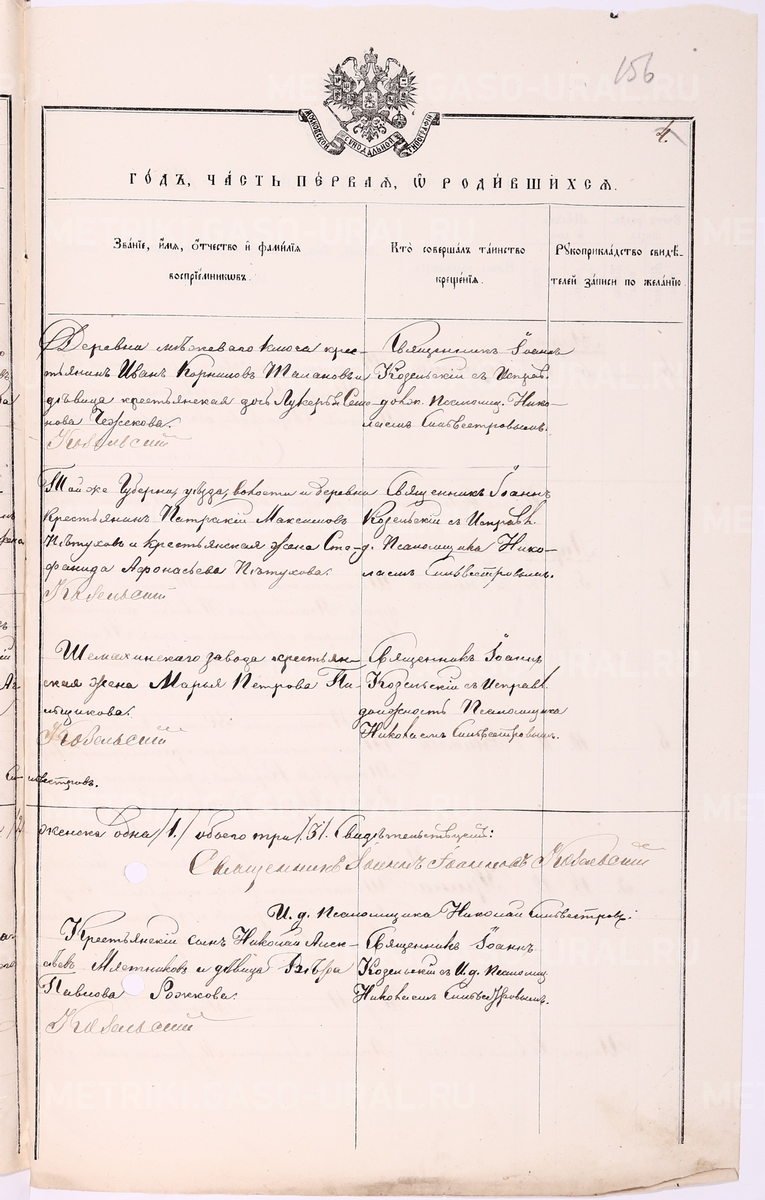 156
4.
МОСКОВСКОЙ СѴНОДАЛЬНОЙ ТИПОГРАФІИ
ГО́ДЪ, ЧА́СТЬ ПЕ́РВАЯ, Ѽ РОДИ́ВШИХСЯ.
Зва́нїе, и́мя, о́тчество и фами́лїя
воспрїе́мникωвъ.
Кто̀ соверша́лъ та́инство
креще́нїя.
Рꙋкоприкла́дство свидѣ́-
телей за́писи по жела́нїю.
Деревни межеваго ключа кре-
стьянинъ Иванъ Корниловъ Талановъ и
дѣвица крестьянская дочь Лукерья Семе-
нова Чежекова.
Козельскій
Священникъ Іоаннъ
Козельскій съ Исправ.
должн. Псаломщ. Нико-
лаемъ Сильвестровымъ.
Той же Губерніи, уѣзда, волости и деревни
Крестьянинъ Патракій Максимовъ
Пѣтуховъ и крестьянская жена Сте-
фанида Афонасьева Пѣтухова.
Козельскій
Священникъ Іоаннъ
Козельскій съ Исправл.
д. Псаломщика Нико-
лаемъ Сильвестровымъ.
Шемахинскаго завода крестьян-
ская жена Марья Петрова Пи-
льщикова.
Козельскій
Священникъ Іоаннъ
Козельскій съ Исправл.
должность Псаломщика
Николаемъ Сильвестровымъ.
Сильвестровъ.
женска одна /1./ обоего три /3/. Свидѣтельствуемъ:
Священникъ Іоаннъ Іоанновъ Козельскій
И. д. Псаломщика Николай Сильвестровъ.
Крестьянскій сынъ Николай Алек-
сѣевъ Мястниковъ и дѣвица Вѣра
Павлова Рожкова.
Козельскій
Священникъ Іоаннъ
Козельскій съ И. д. Псаломщ.
Николаемъ Сильвестровымъ.
METRIKI.GASO-URAL.RU